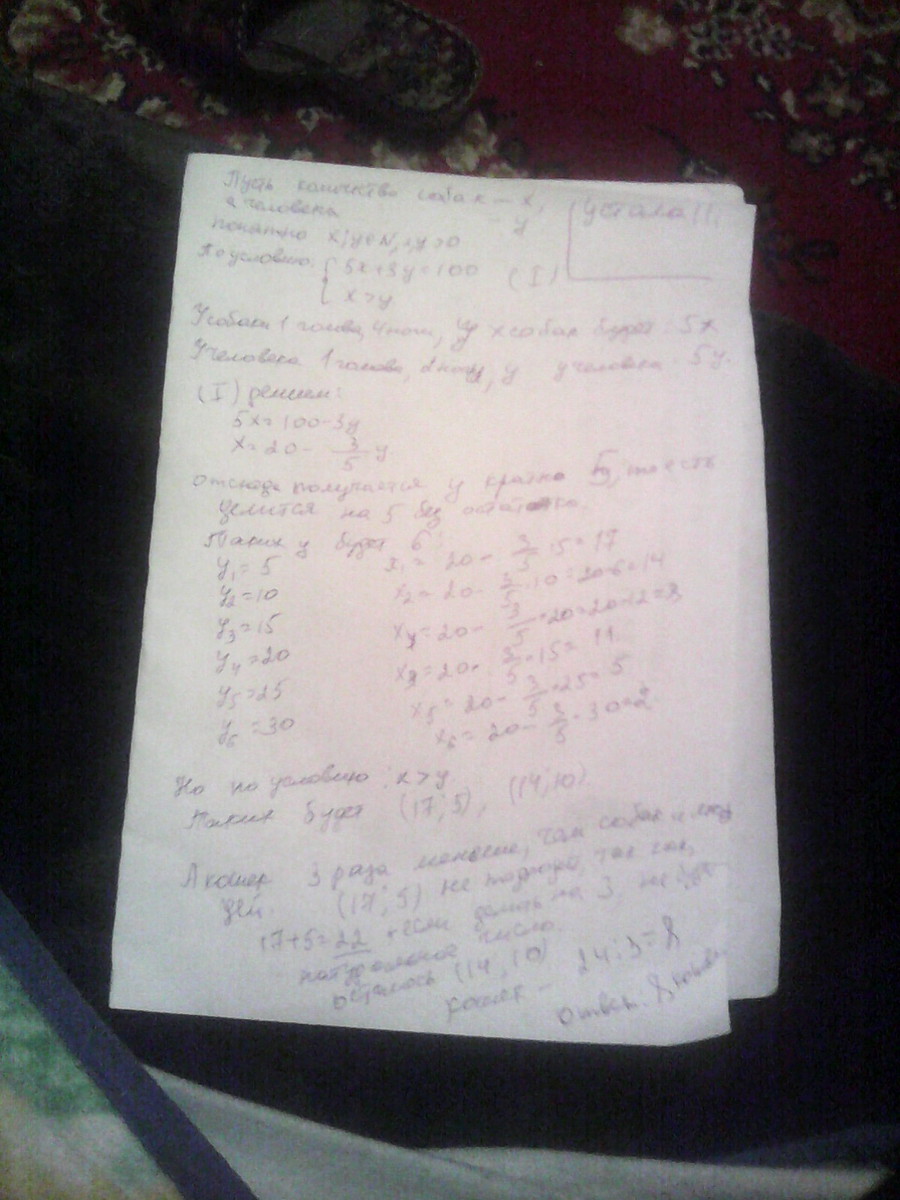 Пусть количество собак – x,
а человека – y
понятно x; y ∈ N, x, y > 0
Устала!!,
По условию: { 5x+3y=100
x > y
(I)
У собаки 1 голова, 4 ноги, у x собак будет 5x
У человека 1 голова, 2 ноги, у y человека 5y.
(I) решаем:
5x = 100-3y
x = 20 - 3/5 y
отсюда получается y кратно 5, то есть
делится на 5 без остатка.
Таких y будет 6:
y₁ = 5 x₁ = 20 - 3/5 · 5 = 17
y₂ = 10 x₂ = 20 - 3/5 · 10 = 20-6 = 14
y₃ = 15 x₄ = 20 - 3/5 · 20 = 20-12 = 8
y₄ = 20 x₃ = 20 - 3/5 · 15 = 11
y₅ = 25 x₅ = 20 - 3/5 · 25 = 5
y₆ = 30 x₆ = 20 - 3/5 · 30 = 2
Но по условию: x > y
Таких будет (17; 5), (14; 10)
А кошек 3 раза меньше, чем собак и лю
дей. (17; 5) не подходит, так как,
17+5=22 если делить на 3, не будет
натуральное число.
осталось (14; 10)
кошек – 24:3=8
ответ: 8